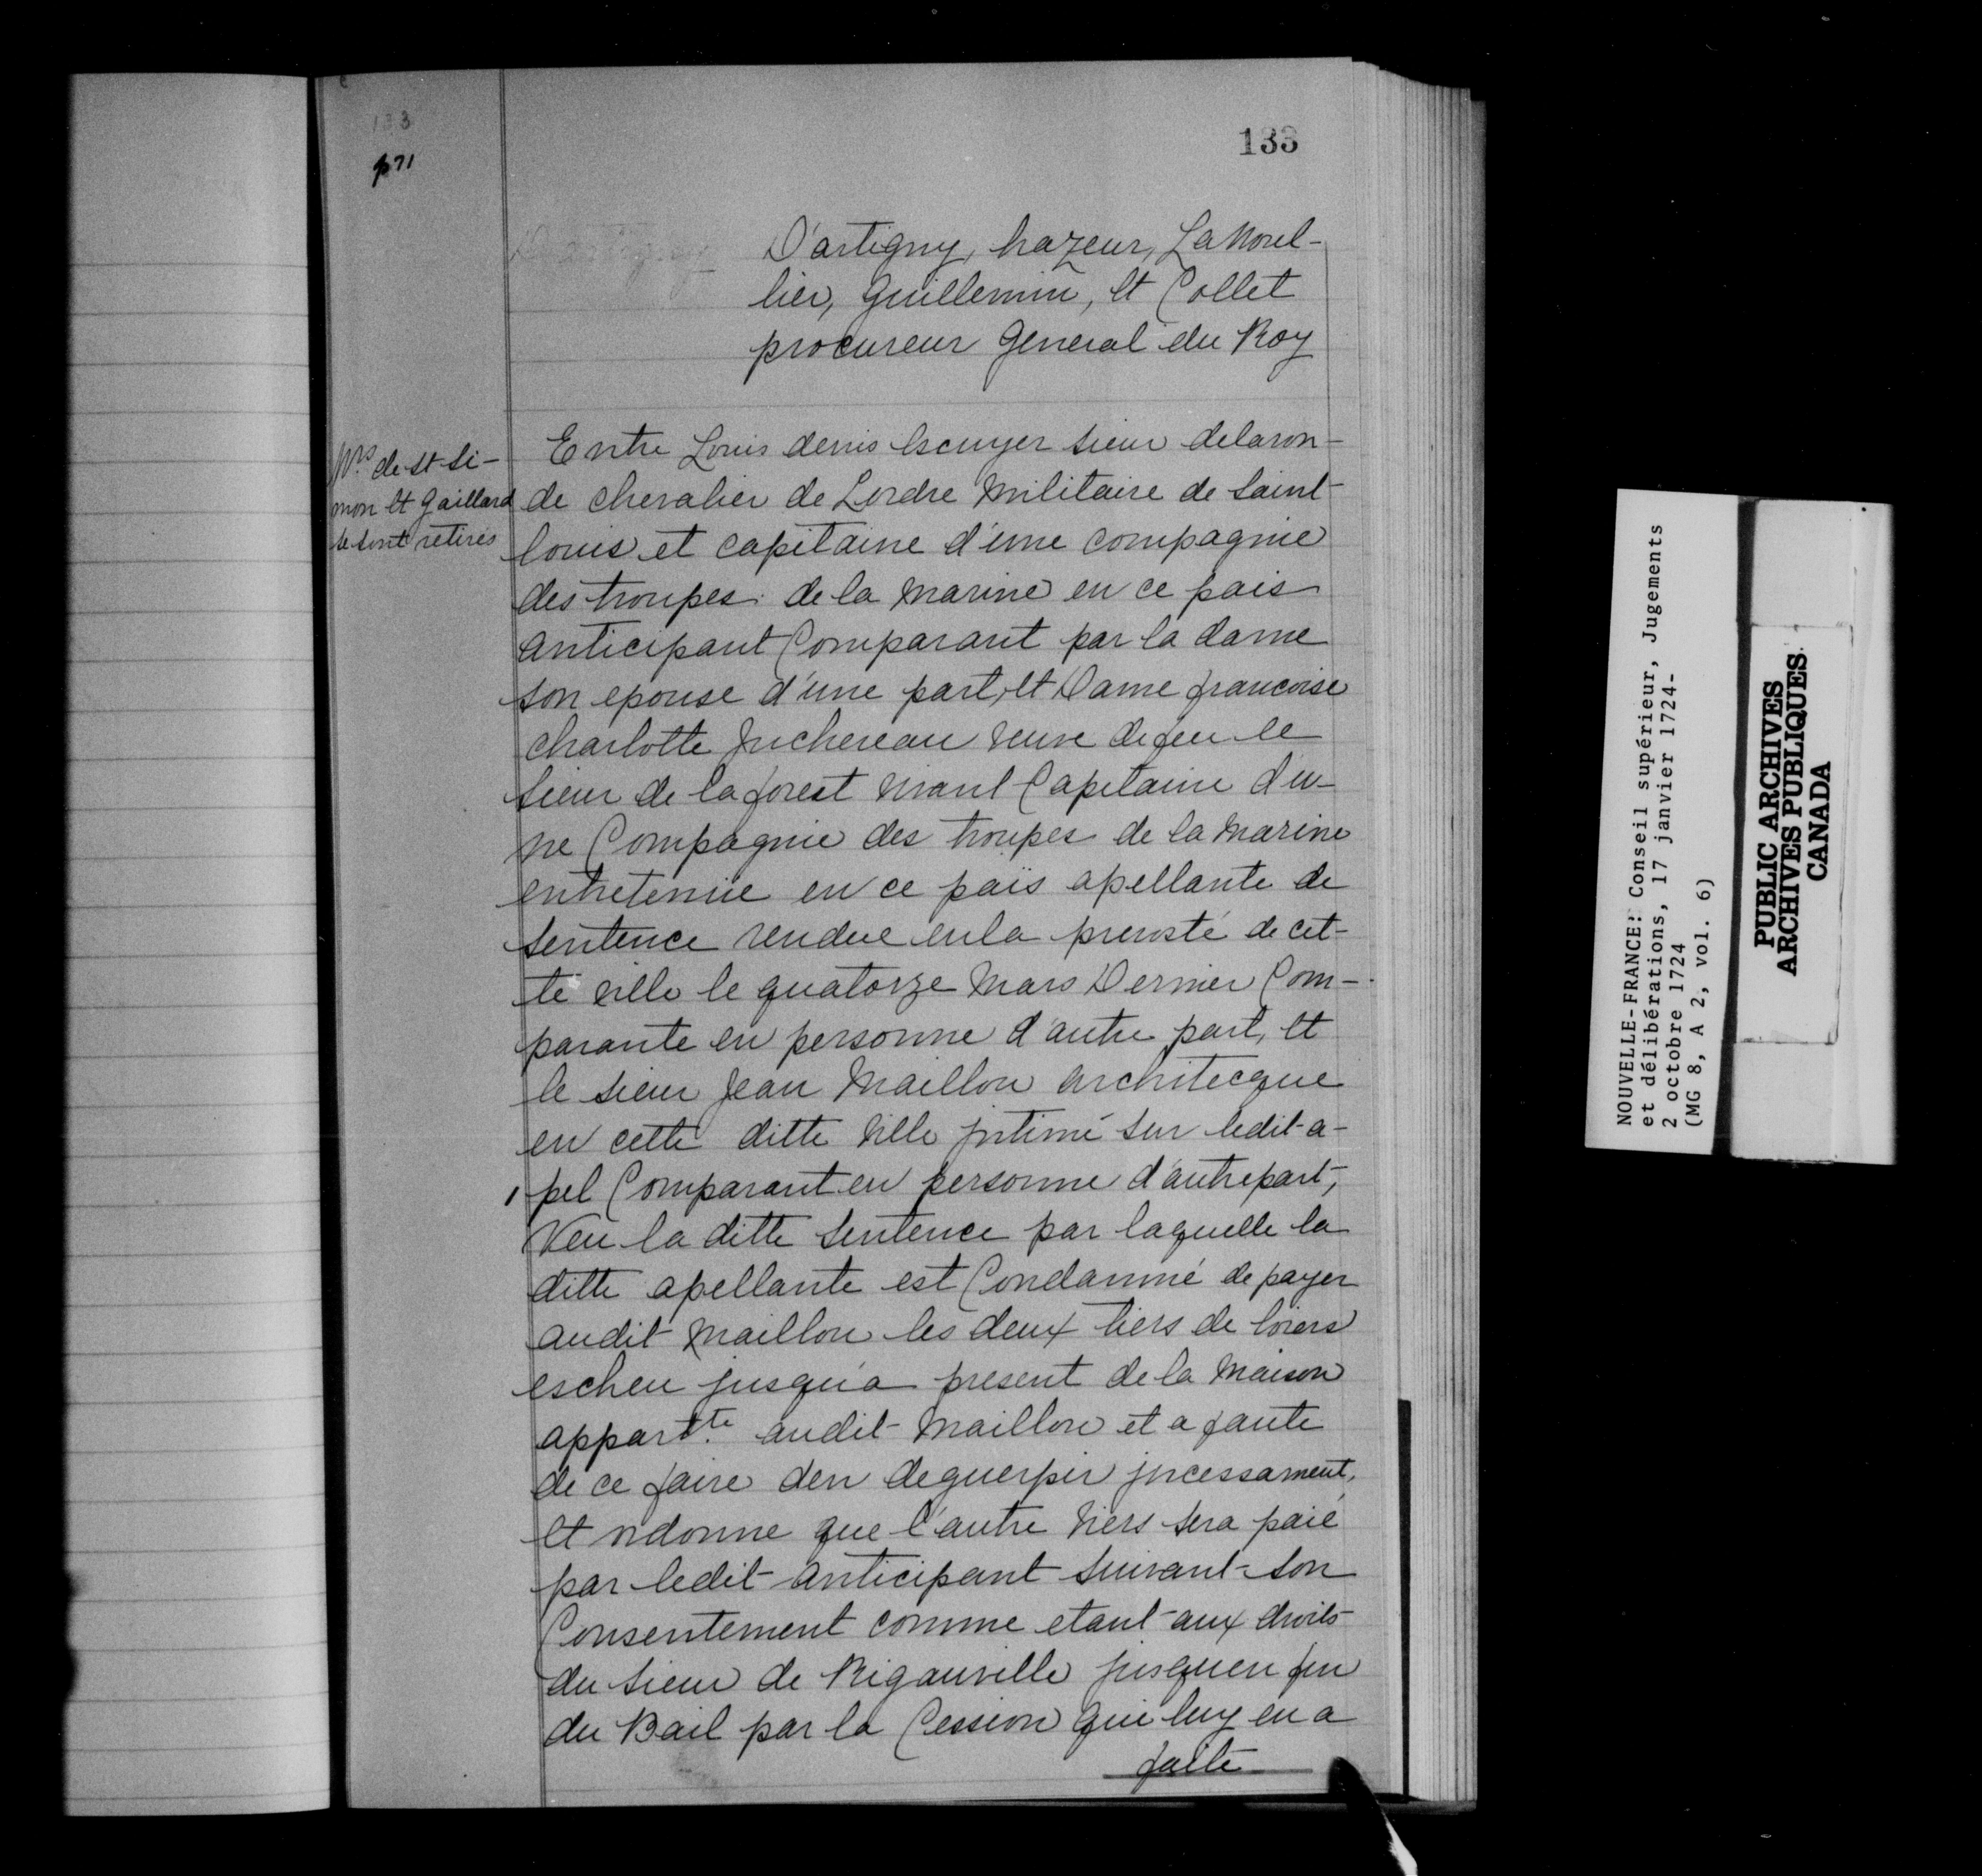 133
p71
133
D'artigny, hazeur, Lanoul-
lier, Guillemin, et Collet
procureur General du Roy
Mrs de st Si-
mon et Gaillard
se sont retirés
Entre Louis denis escuyer sieur delaron-
de chevalier de Lordre Militaire de Saint
louis et capitaine d'une compagnie
des troupes de la marine en ce pais
anticipant Comparant par la dame
son epouse d'une part, et Dame francoise
charlotte Juchereau veuve defeu le
sieur de la forest vivant Capitaine du-
ne Compagnie des troupes de la marine
entretenüe en ce païs apellante de
sentence rendue enla prevosté de cet-
te ville le quatorze Mars Dernier Com-
parante en personne d'autre part, et
le sieur Jean Maillou architecque
en cette ditte ville jntimé sur ledit a-
pel Comparant en personne d'autre part,
Veu la ditte Sentence par laquelle la
ditte apellante est Condamné de payer
audit Maillou les deux tiers de loiers
escheu jusqu'a present de la Maison
appartte audit Maillou et a faute
de ce faire den deguerpir jncessament,
et ordonne que l'autre tiers sera paié
par ledit anticipant suivant son
Consentement comme etant aux droits
du sieur de Rigauville jusquen fin
du Bail par la Cession qui luy en a
faite
NOUVELLE-FRANCE: Conseil supérieur, Jugements
et délibérations, 17 janvier 1724-
2 octobre 1724
(MG 8, A 2, vol. 6)
PUBLIC ARCHIVES
ARCHIVES PUBLIQUES
CANADA